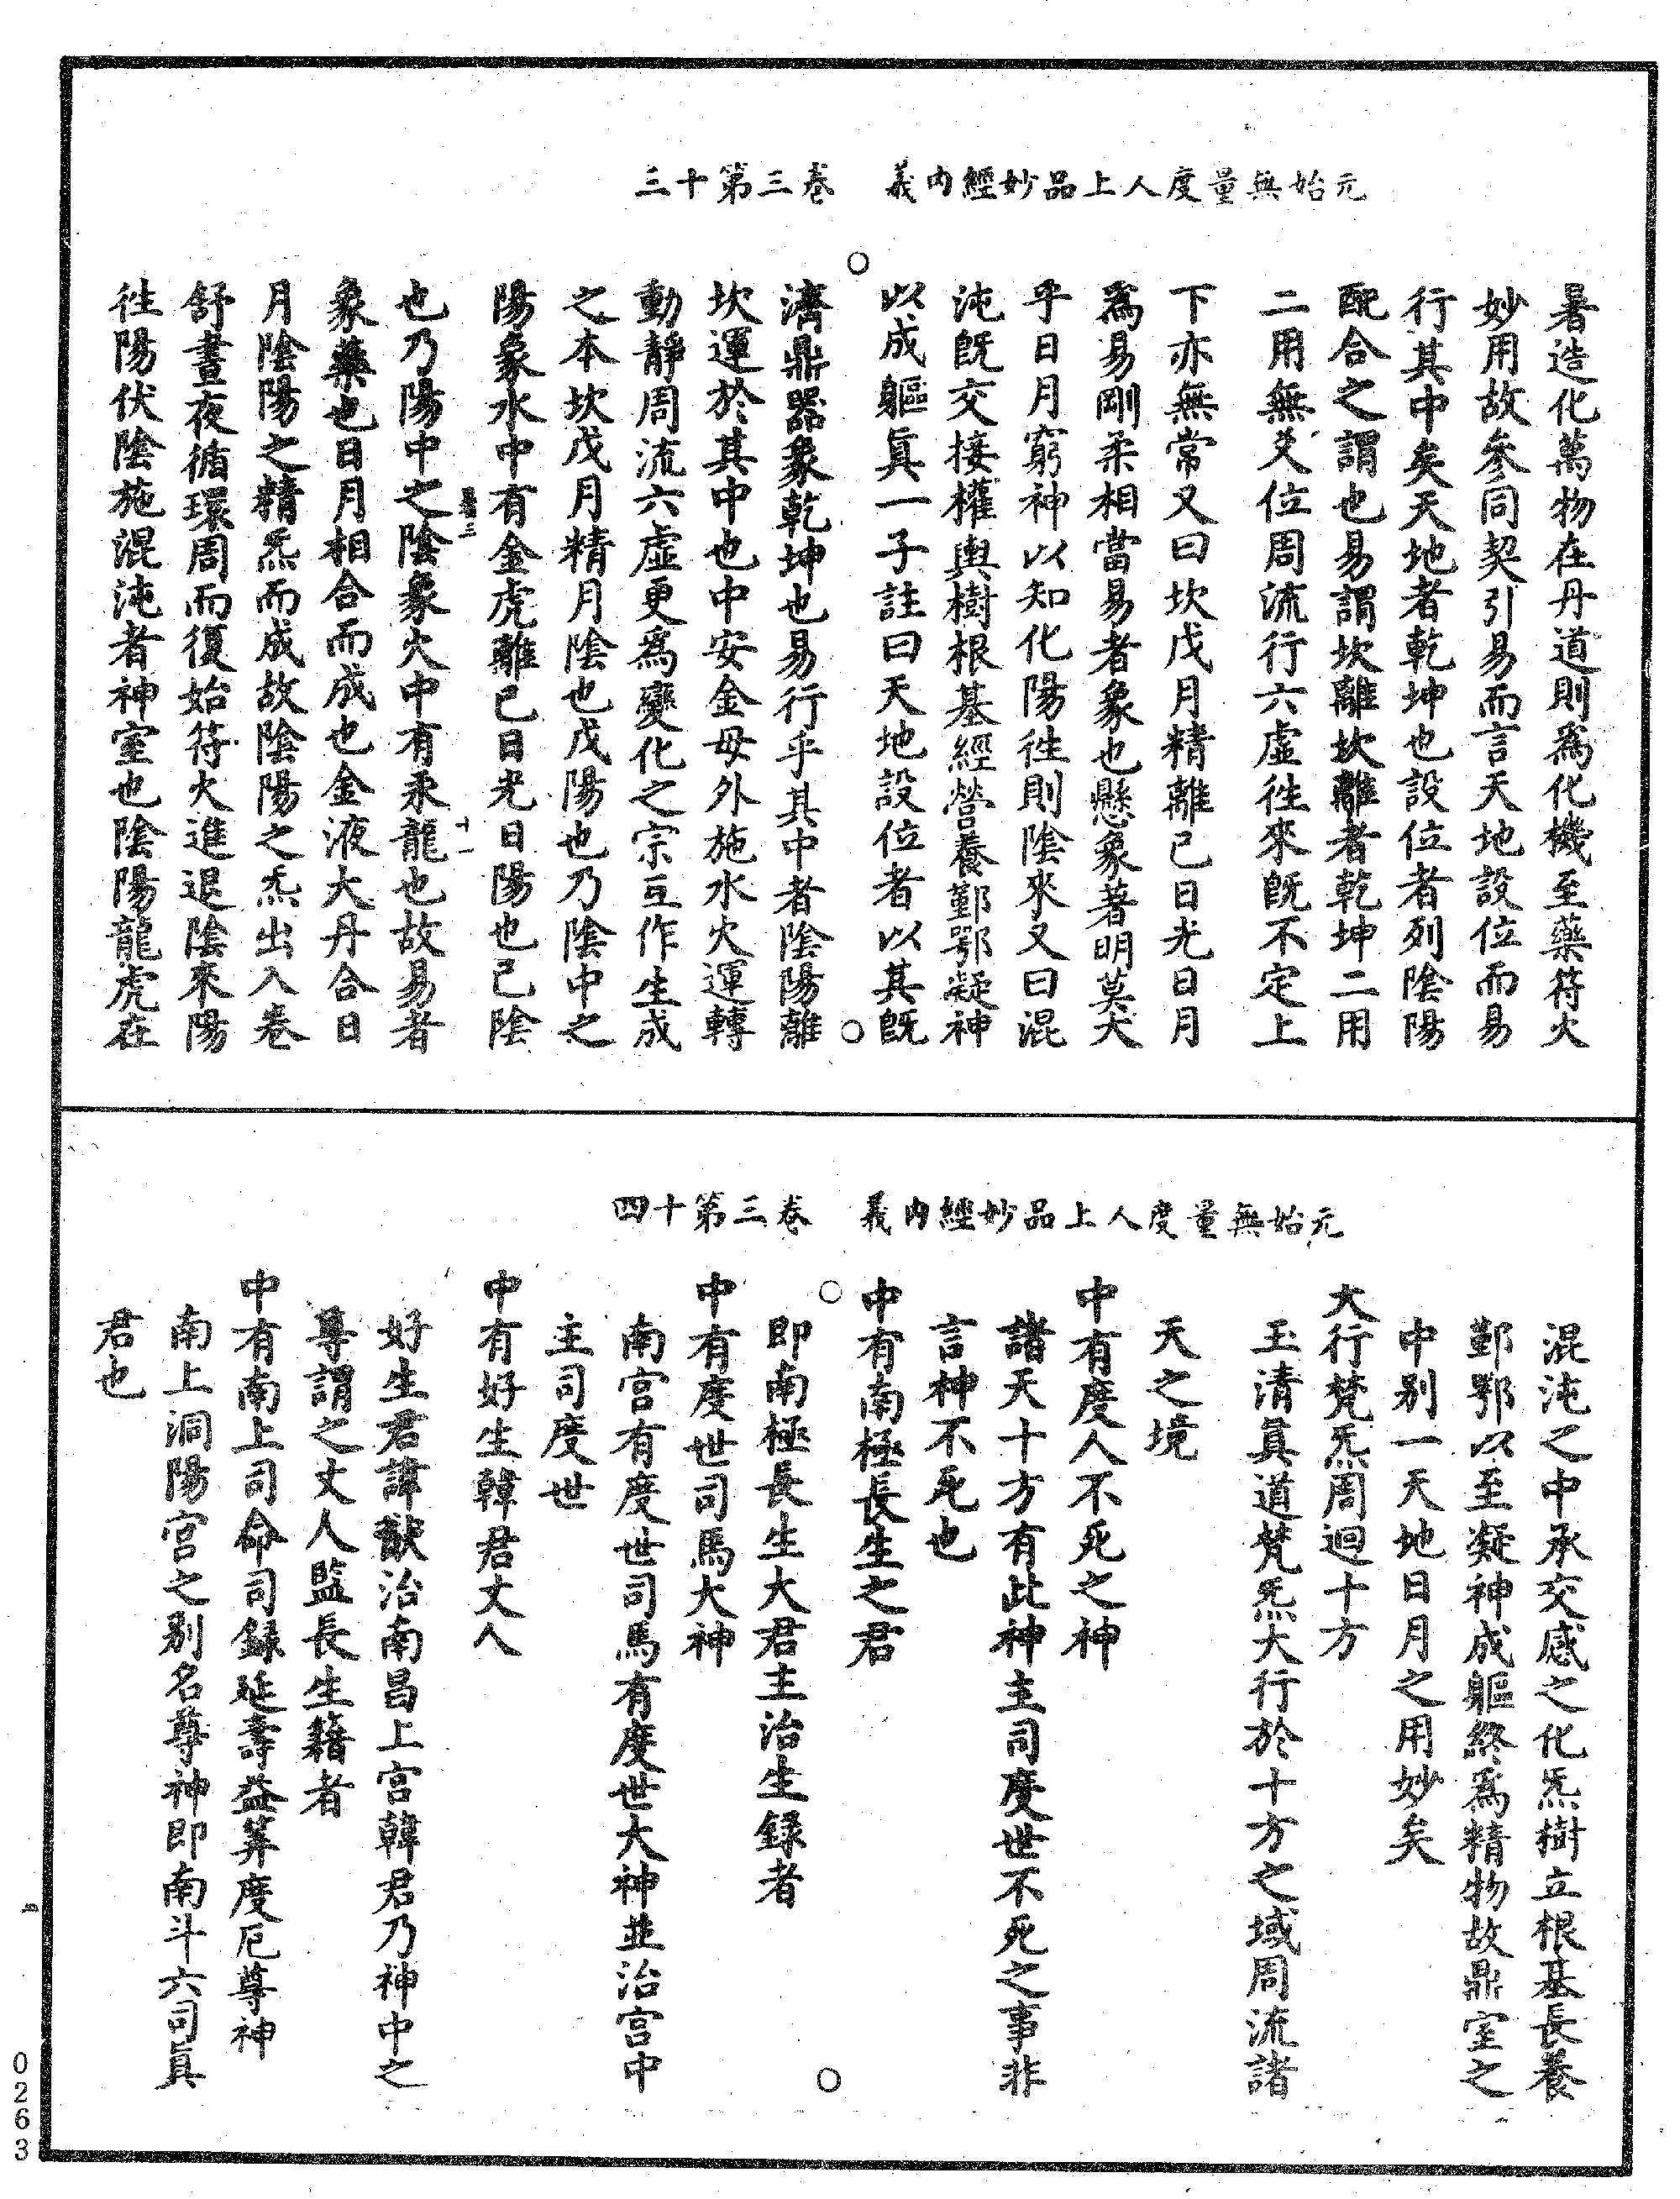 元始無量度人上品妙經內義　卷三第十三
暑造化萬物在丹道則為化機至藥符火
妙用故參同契引易而言天地設位而易
行其中矣天地者乾坤也設位者列陰陽
配合之謂也易謂坎離坎離者乾坤二用
二用無爻位周流行六虛徃來旣不定上
下亦無常又曰坎戊月精離己日光日月
為易剛柔相當易者象也懸象著明莫大
乎日月窮神以知化陽徃則陰來又曰混
沌旣交接權輿樹根基經營養鄞鄂凝神
以成軀眞一子註曰天地設位者以其旣
濟鼎器象乾坤也易行乎其中者陰陽離
坎運於其中也中安金母外施水火運轉
動靜周流六虛更為變化之宗互作生成
之本坎戊月精月陰也戊陽也乃陰中之
陽象水中有金虎離己日光日陽也己陰
卷三　十一
也乃陽中之陰象火中有汞龍也故易者
象藥也日月相合而成也金液大丹合日
月陰陽之精炁而成故陰陽之炁出入卷
舒晝夜循環周而復始符火進退陰來陽
徃陽伏陰施混沌者神室也陰陽龍虎在
元始無量度人上品妙經內義　卷三第十四
混沌之中承交感之化炁樹立根基長養
鄞鄂以至凝神成軀終為精物故鼎室之
中別一天地日月之用妙矣
大行梵炁周迴十方
玉清眞道梵炁大行於十方之域周流諸
天之境
中有度人不死之神
諸天十方有此神主司度世不死之事非
言神不死也
中有南極長生之君
即南極長生大君主治生錄者
中有度世司馬大神
南宮有度世司馬有度世大神並治宮中
主司度世
中有好生韓君丈人
好生君諱 治南昌上宮韓君乃神中之
尊謂之丈人監長生籍者
中有南上司命司錄延壽益筭度厄尊神
南上洞陽宮之別名尊神即南斗六司眞
君也
0263